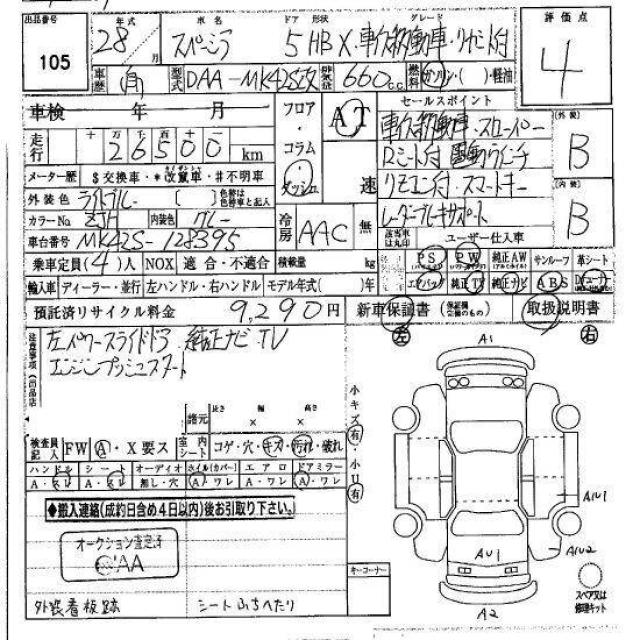 出品番号 年式 車名 ドア 形状 グレード 評価点
105 28年 月 スペーシア 5 HB X 車欠移動車・リヤシート付 4
車歴 自 型式 DAA-MK42S改 排気量 660cc 燃料 ガソリン・( )軽油
車検 年 月 フロア・コラム・ダッシュ AT 速 セールスポイント
走行 十 万 千 百 十 一
26500 km
車欠移動車・スローパー
リヤシート付 電動ウインチ
リモコン付・スマートキー
レーダーブレーキサポート
外装 B
内装 B
メーター歴 $交換車・*改竄車・#不明車
外装色 ライトブルー ( ) 色替は色替車名と記入
カラーNo ZJH 内装色 グレー
冷房 AAC 無
該当車は丸印 ユーザー仕入車
車台番号 MK42S-128395
乗車定員(4)人 NOX 適合・不適合 積載量 kg
PS PW 純正AW サンルーフ 革シート
輸入車 ディーラー・並行 左ハンドル・右ハンドル モデル年式( )年
エアバッグ 純正TV 純正ナビ ABS
預託済リサイクル料金 9,290円 新車保証書 取扱説明書
注意事項(出品店)
左パワースライドドア 純正ナビ TV
エンジンプッシュスタート
左 右
A1
諸元 長さ 幅 高さ
× ×
小キズ有・小U有
検査員記入 FW A・X要ス 室内シート コゲ・穴・キズ・汚れ・破れ
ハンドル シート オーディオ ホイル(カバー) エアロ ドアミラー
A・スレ A・スレ 無し・穴 A・ワレ A・ワレ A・ワレ
◆搬入連絡(成約日含め4日以内)後お引取り下さい。
オークション査定済
AA
A1U1
AU1 A1U2
キーコーナー
スペア又は修理キット
外装看板跡 シートふちへたり
A2